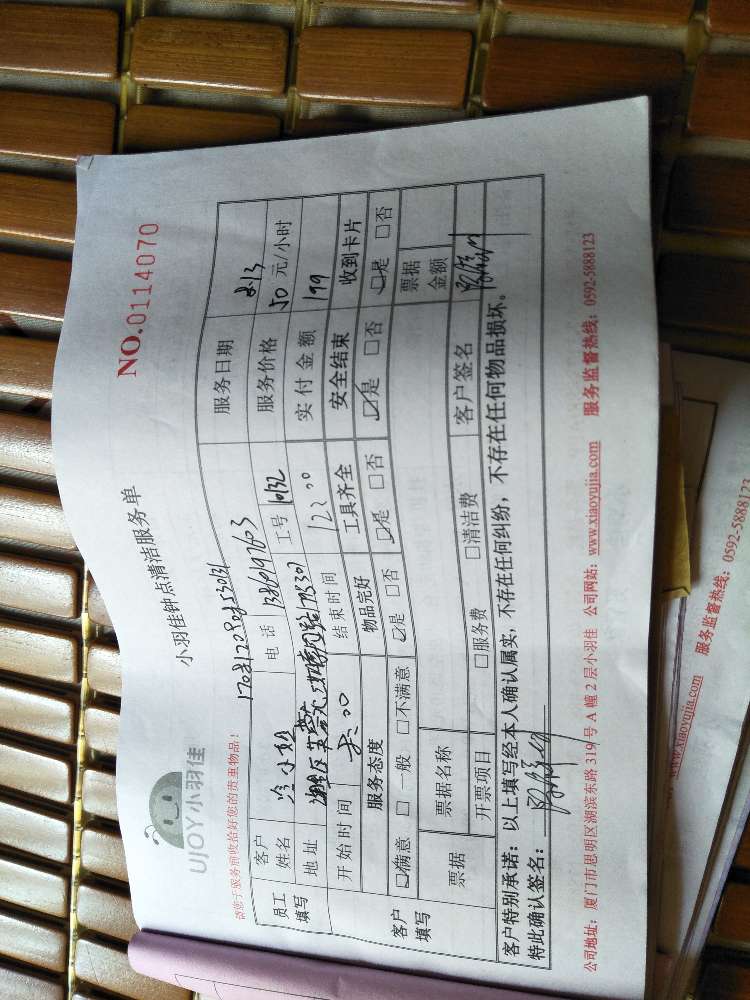 NO.0114070
小羽佳钟点清洁服务单
UJOY小羽佳
请您于服务前收拾好您的贵重物品!
员工填写
客户姓名
电话
工号
服务日期 2.13
地址
服务价格 50 元/小时
开始时间
结束时间 12:00
实付金额 199
客户填写
服务态度 物品完好 工具齐全 安全结束 收到卡片
满意 一般 不满意 是 否 是 否 是 否 是 否
票据 票据名称 票据金额
开票项目 服务费 清洁费 客户签名
客户特别承诺:以上填写经本人确认属实,不存在任何纠纷,不存在任何物品损坏。
特此确认签名:
公司地址:厦门市思明区湖滨东路319号A幢2层小羽佳 公司网站:www.xiaoyujia.com 服务监督热线:0592-5888123
www.xiaoyujia.com 服务监督热线:0592-5888123